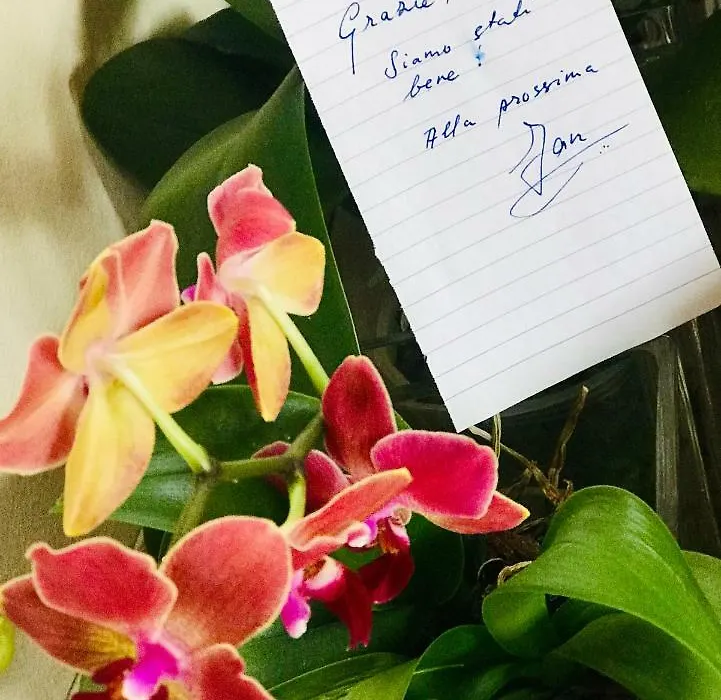 Grazie
Siamo stati
bene !
Alla prossima
Jan